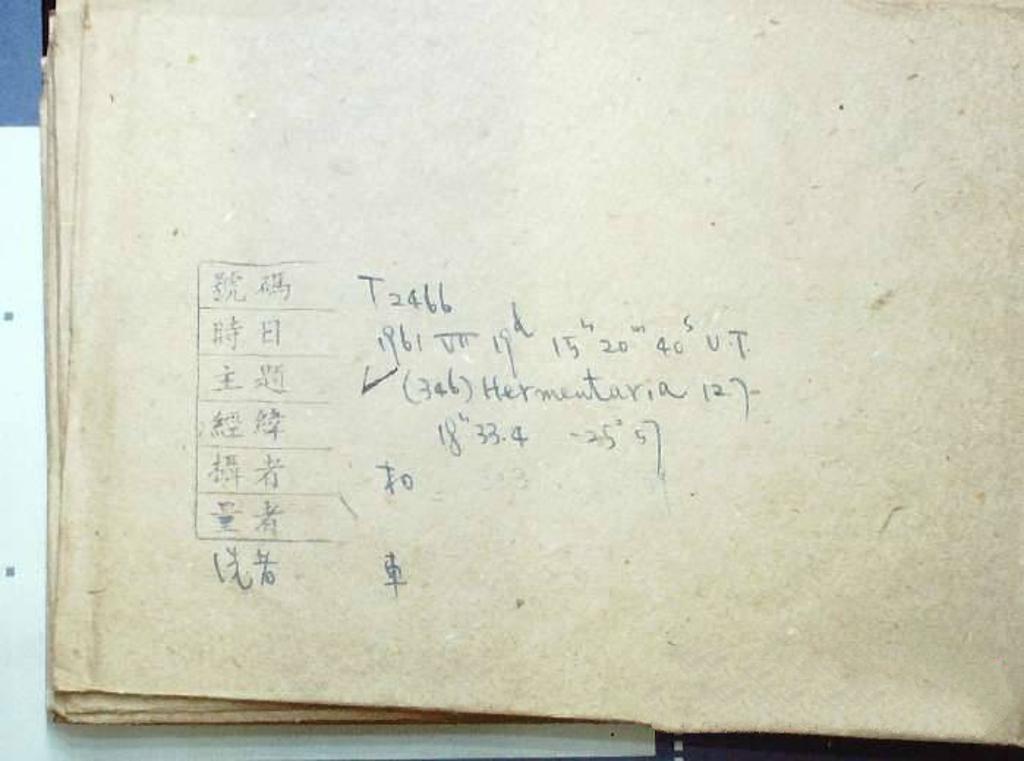 號碼 T2466
時日 1961 VII 19d 15h 20m 40s U.T.
主題 ✓ (346) Hermentaria 12.7
經緯 18h 33.4 -25° 57
攝者 和
量者
洗者 車